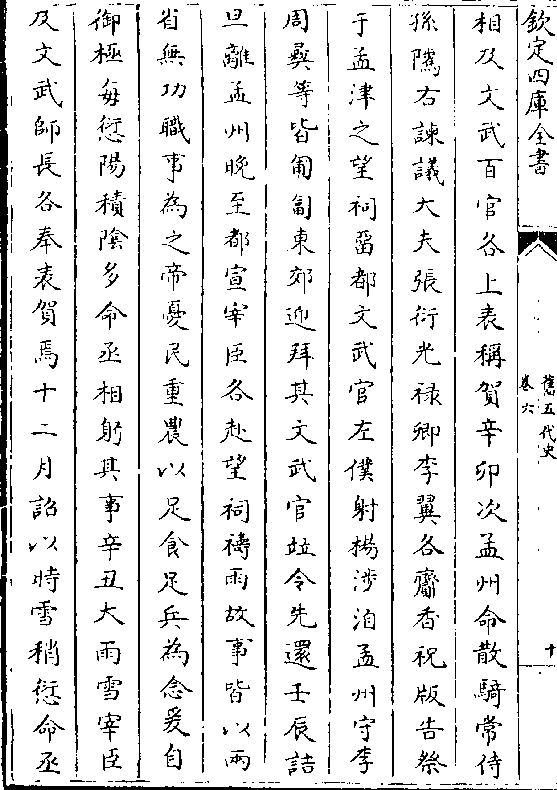 欽定四庫全書
舊五代史
卷六
十
相及文武百官各上表稱賀辛卯次孟州命散騎常侍
孫隲右諫議大夫張衍光禄卿李翼各齎香祝版告祭
于孟津之望祠畱都文武官左僕射楊涉洎孟州守李
周彞等皆匍匐東郊迎拜其文武官竝令先還壬辰詰
旦離孟州晚至都宣宰臣各赴望祠禱雨故事皆以兩
省無功職事為之帝憂民重農以足食足兵為念爰自
御極每愆陽積陰多命丞相躬其事辛丑大雨雪宰臣
及文武師長各奉表賀焉十二月詔以時雪稍愆命丞